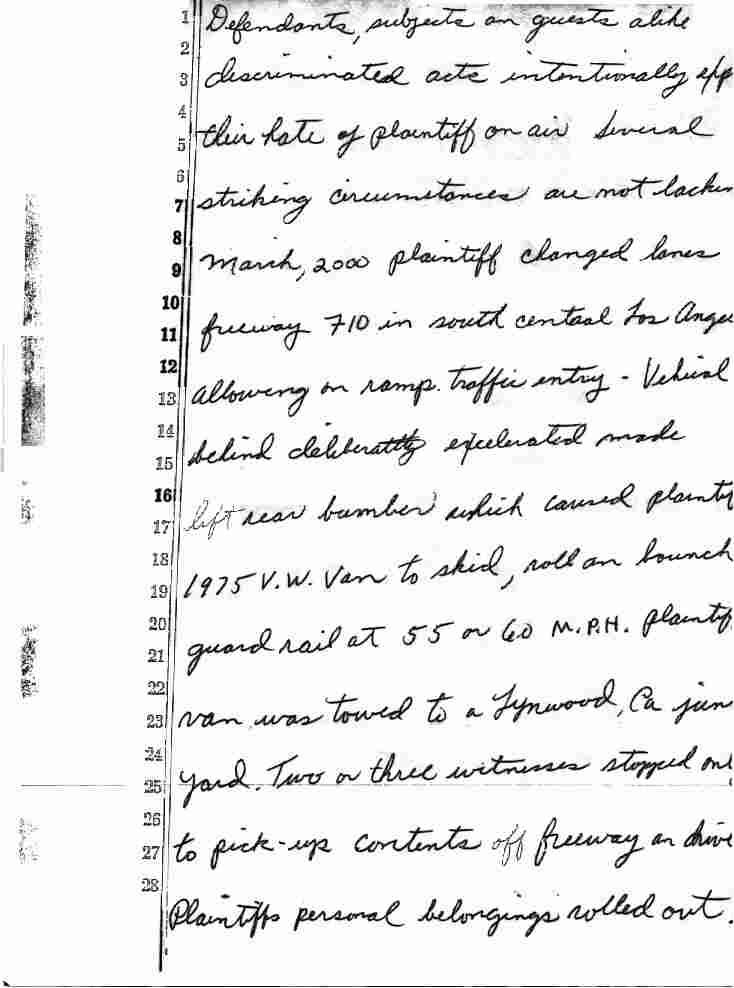 1 Defendants, subjects an guests alike
2
3 discriminated acts intentionally exp
4
5 their hate of plaintiff on air Several
6
7 striking circumstances are not lackin
8
9 March, 2000 plaintiff changed lanes
10
11 freeway 710 in south centaal Los Ange
12
13 allowing on ramp traffic entry - Vehical
14
15 behind deliberattly excelerated made
16
17 left rear bumber which caused plainti
18
19 1975 V.W. Van to skid, roll an bounch
20
21 guard rail at 55 or 60 M.P.H. plaintif
22
23 van was towed to a Lynwood, Ca jun
24
25 yard. Two or three witnesses stopped onl
26
27 to pick-up contents off freeway an drive
28
Plaintiffs personal belongings rolled out.